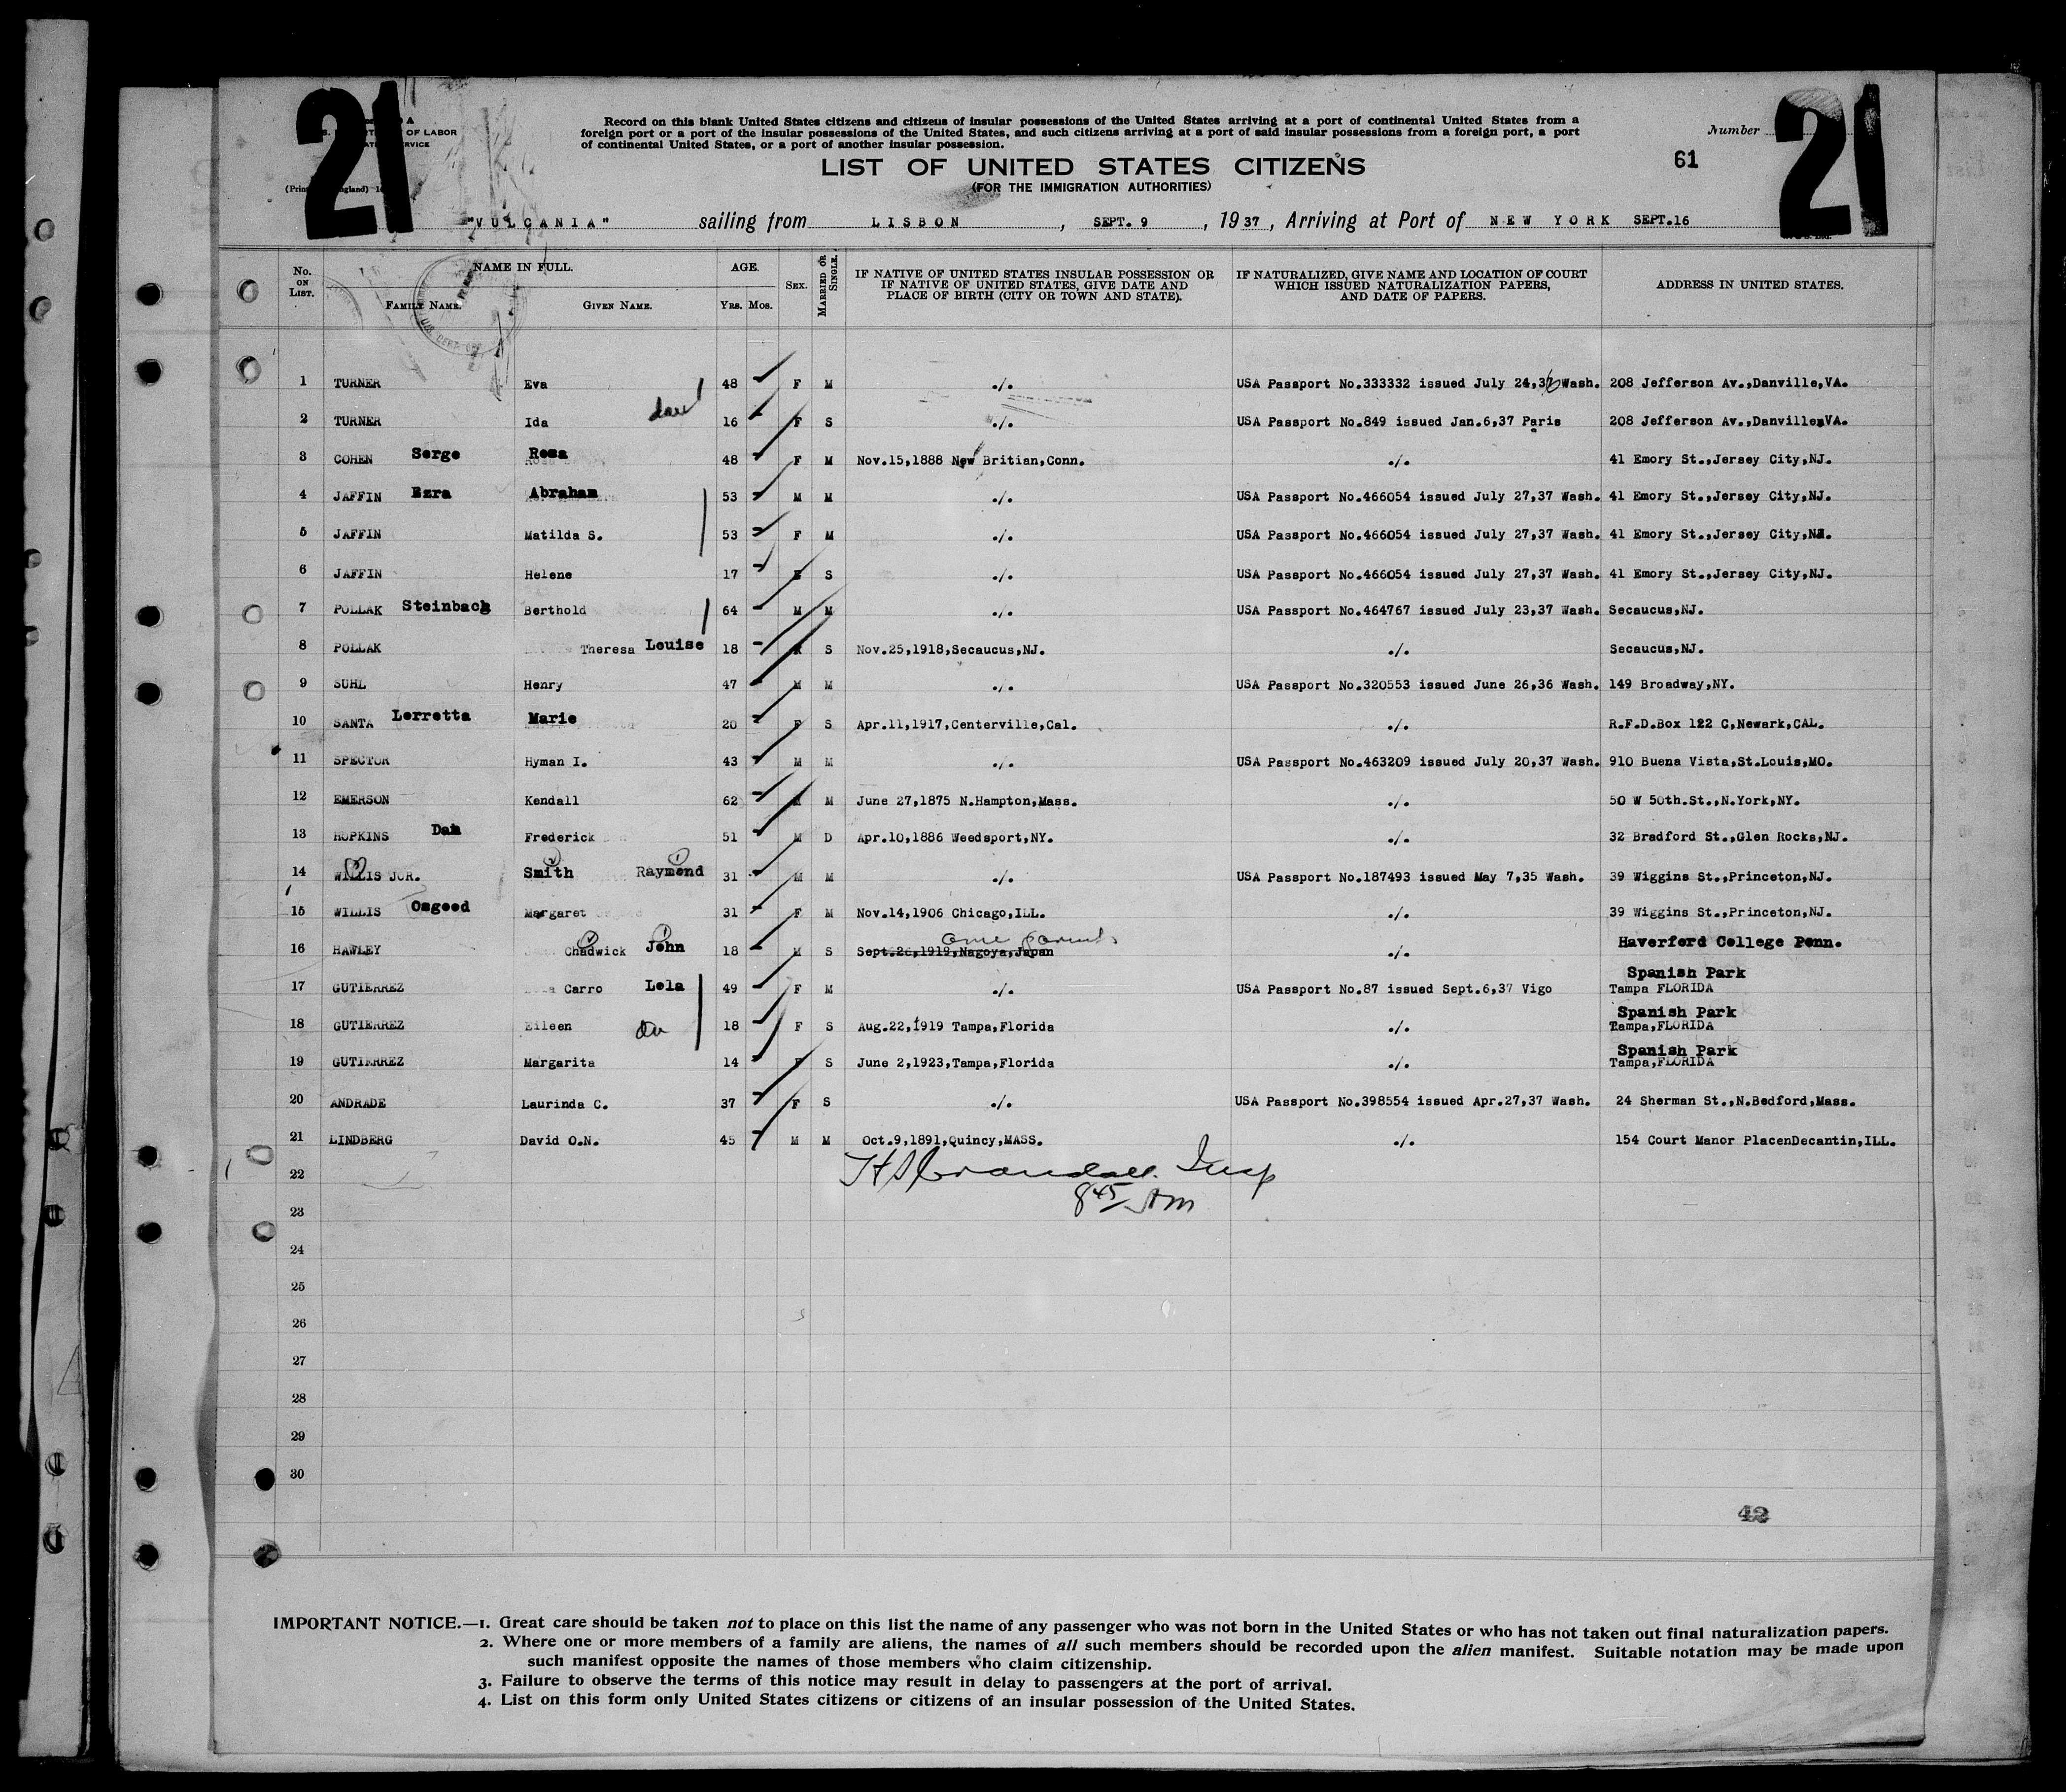 21
21
OF LABOR
Record on this blank United States citizens and citizens of insular possessions of the United States arriving at a port of continental United States from a
foreign port or a port of the insular possessions of the United States, and such citizens arriving at a port of said insular possessions from a foreign port, a port
of continental United States, or a port of another insular possession.
Number
LIST OF UNITED STATES CITIZENS
61
(FOR THE IMMIGRATION AUTHORITIES)
"VULCANIA" sailing from LISBON , SEPT. 9 , 1937 , Arriving at Port of NEW YORK SEPT.16
No. ON LIST. NAME IN FULL. FAMILY NAME. GIVEN NAME. AGE. YRS. MOS. SEX. MARRIED OR SINGLE. IF NATIVE OF UNITED STATES INSULAR POSSESSION OR IF NATIVE OF UNITED STATES, GIVE DATE AND PLACE OF BIRTH (CITY OR TOWN AND STATE). IF NATURALIZED, GIVE NAME AND LOCATION OF COURT WHICH ISSUED NATURALIZATION PAPERS, AND DATE OF PAPERS. ADDRESS IN UNITED STATES.
1 TURNER Eva 48 F M ./. USA Passport No.333332 issued July 24,36 Wash. 208 Jefferson Av.,Danville,VA.
2 TURNER Ida dau 16 F S ./. USA Passport No.849 issued Jan.6,37 Paris 208 Jefferson Av.,Danville,VA.
3 COHEN Serge Rosa 48 F M Nov.15,1888 New Britian,Conn. ./. 41 Emory St.,Jersey City,NJ.
4 JAFFIN Ezra Abraham 53 M M ./. USA Passport No.466054 issued July 27,37 Wash. 41 Emory St.,Jersey City,NJ.
5 JAFFIN Matilda S. 53 F M ./. USA Passport No.466054 issued July 27,37 Wash. 41 Emory St.,Jersey City,NJ.
6 JAFFIN Helene 17 F S ./. USA Passport No.466054 issued July 27,37 Wash. 41 Emory St.,Jersey City,NJ.
7 POLLAK Steinback Berthold 64 M M ./. USA Passport No.464767 issued July 23,37 Wash. Secaucus,NJ.
8 POLLAK Theresa Louise 18 S Nov.25,1918,Secaucus,NJ. ./. Secaucus,NJ.
9 SUHL Henry 47 M M ./. USA Passport No.320553 issued June 26,36 Wash. 149 Broadway,NY.
10 SANTA Lorretta Marie 20 F S Apr.11,1917,Centerville,Cal. ./. R.F.D.Box 122 C,Newark,CAL.
11 SPECTOR Hyman I. 43 M M ./. USA Passport No.463209 issued July 20,37 Wash. 910 Buena Vista,St.Louis,MO.
12 EMERSON Kendall 62 M M June 27,1875 N.Hampton,Mass. ./. 50 W 50th.St.,N.York,NY.
13 HOPKINS Dan Frederick 51 M D Apr.10,1886 Weedsport,NY. ./. 32 Bradford St.,Glen Rocks,NJ.
14 WILLIS JUR. Smith Raymond 31 M M ./. USA Passport No.187493 issued May 7,35 Wash. 39 Wiggins St.,Princeton,NJ.
15 WILLIS Osgood Margaret 31 F M Nov.14,1906 Chicago,ILL. ./. 39 Wiggins St.,Princeton,NJ.
16 HAWLEY Chadwick John 18 M S Sept.26,1919,Nagoya,Japan ./. Haverford College Penn.
17 GUTIERREZ Carro Lela 49 F M ./. USA Passport No.87 issued Sept.6,37 Vigo Spanish Park Tampa FLORIDA
18 GUTIERREZ Eileen 18 F S Aug.22,1919 Tampa,Florida ./. Spanish Park Tampa,FLORIDA
19 GUTIERREZ Margarita 14 F S June 2,1923,Tampa,Florida ./. Spanish Park Tampa,FLORIDA
20 ANDRADE Laurinda C. 37 F S ./. USA Passport No.398554 issued Apr.27,37 Wash. 24 Sherman St.,N.Bedford,Mass.
21 LINDBERG David O.N. 45 M M Oct.9,1891,Quincy,MASS. ./. 154 Court Manor PlacenDecantin,ILL.
22 Insp
23 8 45 AM
24
25
26
27
28
29
30
42
IMPORTANT NOTICE.—1. Great care should be taken not to place on this list the name of any passenger who was not born in the United States or who has not taken out final naturalization papers.
2. Where one or more members of a family are aliens, the names of all such members should be recorded upon the alien manifest. Suitable notation may be made upon
such manifest opposite the names of those members who claim citizenship.
3. Failure to observe the terms of this notice may result in delay to passengers at the port of arrival.
4. List on this form only United States citizens or citizens of an insular possession of the United States.